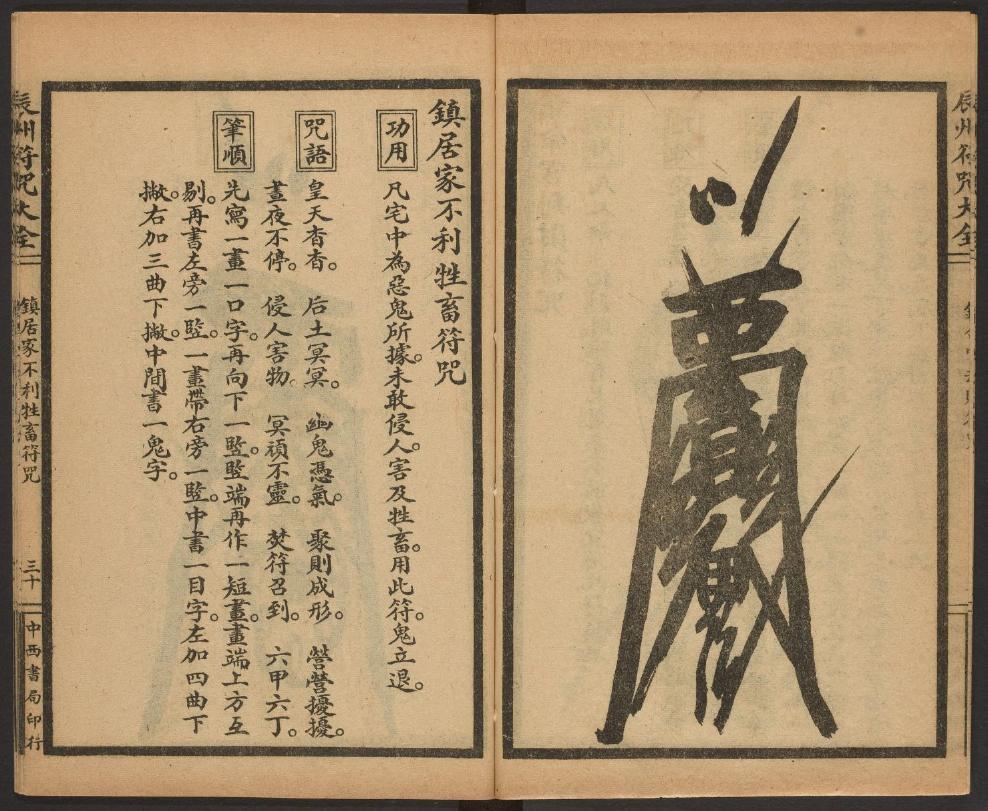 辰州符咒大全
鎮居家不利牲畜符咒
功用
凡宅中為惡鬼所據。未敢侵人。害及牲畜。用此符。鬼立退。
咒語
皇天杳杳。 后土冥冥。 幽鬼憑氣。 聚則成形。 營營擾擾。
晝夜不停。 侵人害物。 冥頑不靈。 焚符召到。 六甲六丁。
筆順
先寫一畫一口字。再向下一竪。竪端再作一短畫。畫端上方互
剔。再書左旁一竪。一畫帶右旁一竪。中書一目字。左加四曲下
撇。右加三曲下撇。中間書一鬼字。
辰州符咒大全
鎮居家不利牲畜符咒
三十
中西書局印行